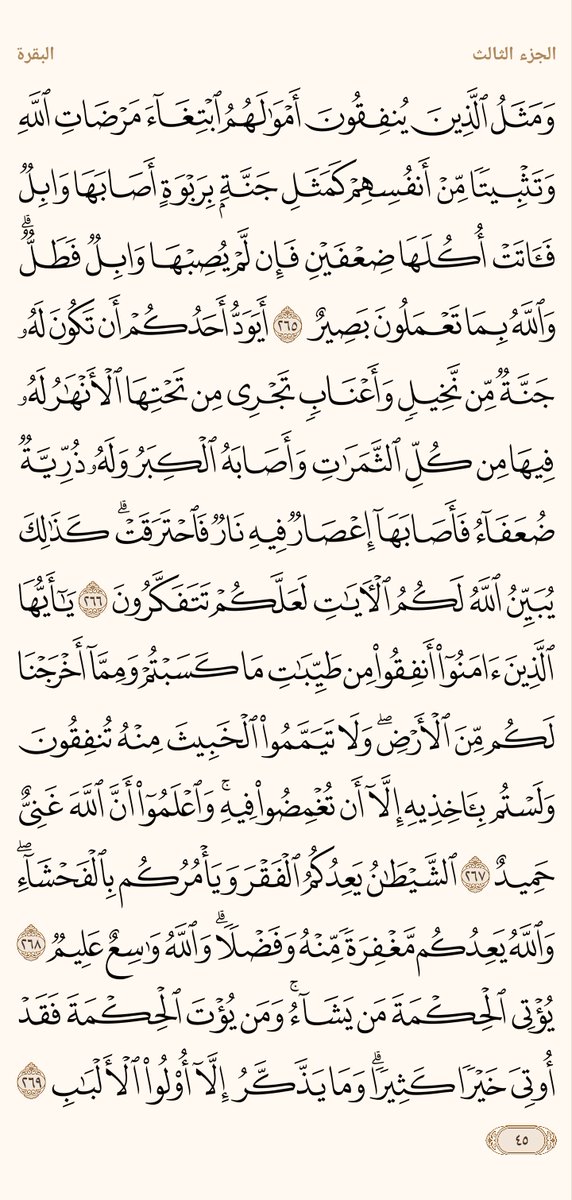 الجزء الثالث
البقرة
وَمَثَلُ ٱلَّذِينَ يُنفِقُونَ أَمْوَٰلَهُمُ ٱبْتِغَآءَ مَرْضَاتِ ٱللَّهِ
وَتَثْبِيتًا مِّنْ أَنفُسِهِمْ كَمَثَلِ جَنَّةٍۭ بِرَبْوَةٍ أَصَابَهَا وَابِلٌ
فَـَٔاتَتْ أُكُلَهَا ضِعْفَيْنِ فَإِن لَّمْ يُصِبْهَا وَابِلٌ فَطَلٌّ ۗ
وَٱللَّهُ بِمَا تَعْمَلُونَ بَصِيرٌ ٢٦٥ أَيَوَدُّ أَحَدُكُمْ أَن تَكُونَ لَهُۥ
جَنَّةٌ مِّن نَّخِيلٍ وَأَعْنَابٍ تَجْرِى مِن تَحْتِهَا ٱلْأَنْهَٰرُ لَهُۥ
فِيهَا مِن كُلِّ ٱلثَّمَرَٰتِ وَأَصَابَهُ ٱلْكِبَرُ وَلَهُۥ ذُرِّيَّةٌ
ضُعَفَآءُ فَأَصَابَهَآ إِعْصَارٌ فِيهِ نَارٌ فَٱحْتَرَقَتْ ۗ كَذَٰلِكَ
يُبَيِّنُ ٱللَّهُ لَكُمُ ٱلْـَٔايَٰتِ لَعَلَّكُمْ تَتَفَكَّرُونَ ٢٦٦ يَٰٓأَيُّهَا
ٱلَّذِينَ ءَامَنُوٓا۟ أَنفِقُوا۟ مِن طَيِّبَٰتِ مَا كَسَبْتُمْ وَمِمَّآ أَخْرَجْنَا
لَكُم مِّنَ ٱلْأَرْضِ ۖ وَلَا تَيَمَّمُوا۟ ٱلْخَبِيثَ مِنْهُ تُنفِقُونَ
وَلَسْتُم بِـَٔاخِذِيهِ إِلَّآ أَن تُغْمِضُوا۟ فِيهِ ۚ وَٱعْلَمُوٓا۟ أَنَّ ٱللَّهَ غَنِىٌّ
حَمِيدٌ ٢٦٧ ٱلشَّيْطَٰنُ يَعِدُكُمُ ٱلْفَقْرَ وَيَأْمُرُكُم بِٱلْفَحْشَآءِ ۖ
وَٱللَّهُ يَعِدُكُم مَّغْفِرَةً مِّنْهُ وَفَضْلًا ۗ وَٱللَّهُ وَٰسِعٌ عَلِيمٌ ٢٦٨
يُؤْتِى ٱلْحِكْمَةَ مَن يَشَآءُ ۚ وَمَن يُؤْتَ ٱلْحِكْمَةَ فَقَدْ
أُوتِىَ خَيْرًا كَثِيرًا ۗ وَمَا يَذَّكَّرُ إِلَّآ أُو۟لُوا۟ ٱلْأَلْبَٰبِ ٢٦٩
٤٥